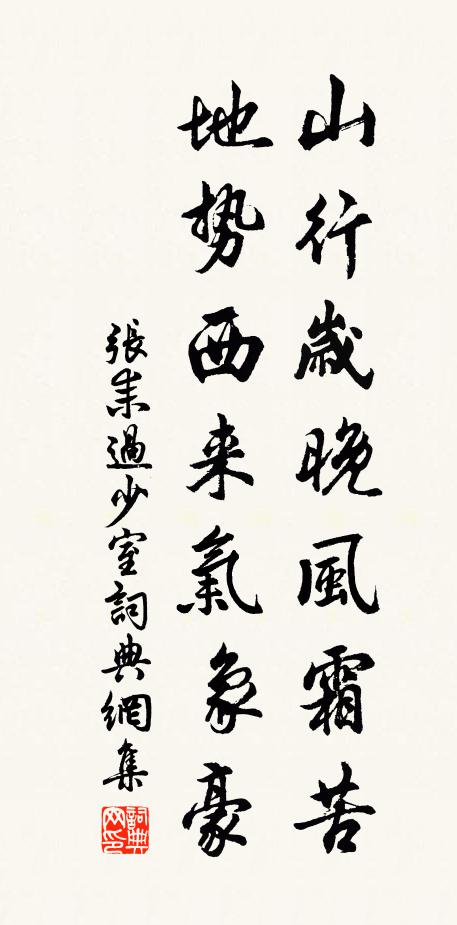 山行歲晚風霜苦
地勢西来氣象豪
張耒過少室詞典網集
詞典网印